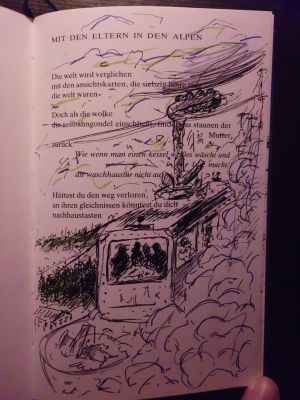 MIT DEN ELTERN IN DEN ALPEN
Die welt wird verglichen
mit den ansichtskarten, die siebzig jahre
die welt waren
Doch als die wolke
die seilbahngondel einschließt, findet das staunen der
Mutter
zurück:
Wie wenn man einen kessel weißes wäscht und
die waschhaustür nicht aufmacht
Hättest du den weg verloren,
an ihren gleichnissen könntest du dich
nachhaustasten